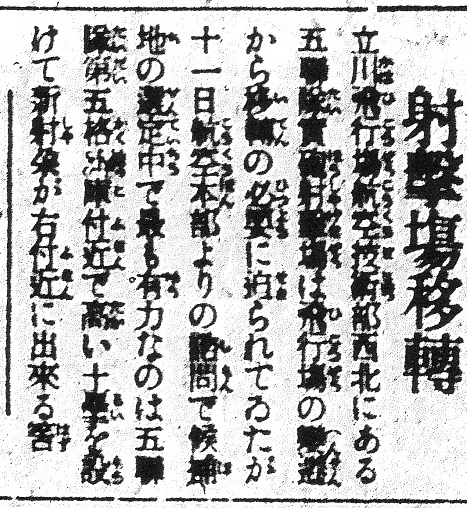 射擊場移轉
立川飛行場航空技術部西北にある
五聯隊實彈射擊場は飛行場の擴張
から移轉の必要に迫られてゐたが
十一日航空本部よりの諮問で候補
地の選定中で最も有力なのは五聯
隊第五格納庫付近で高い土壘を設
けて新射垜が右付近に出來る筈